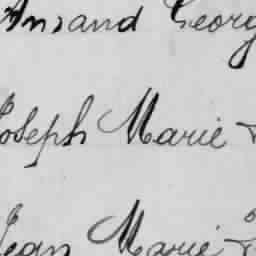 Ansand Georg
Joseph Marie
Jean Marie